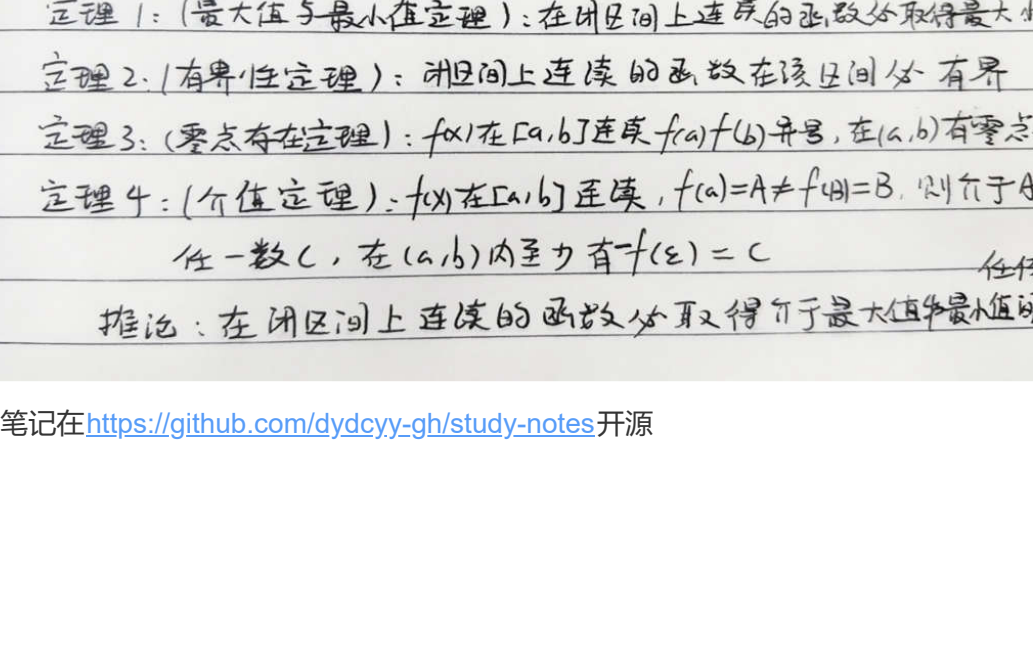 定理1：(最大值与最小值定理)：在闭区间上连续的函数必取得最大
定理2：(有界性定理)：闭区间上连续的函数在该区间必有界
定理3：(零点存在定理)：f(x)在[a,b]连续f(a)f(b)异号，在(a,b)有零点
定理4：(介值定理)：f(x)在[a,b]连续，f(a)=A≠f(B)=B，则介于A
任一数C，在(a,b)内至少有一f(ε)=C
任何
推论：在闭区间上连续的函数必取得介于最大值和最小值间
笔记在https://github.com/dydcyy-gh/study-notes开源